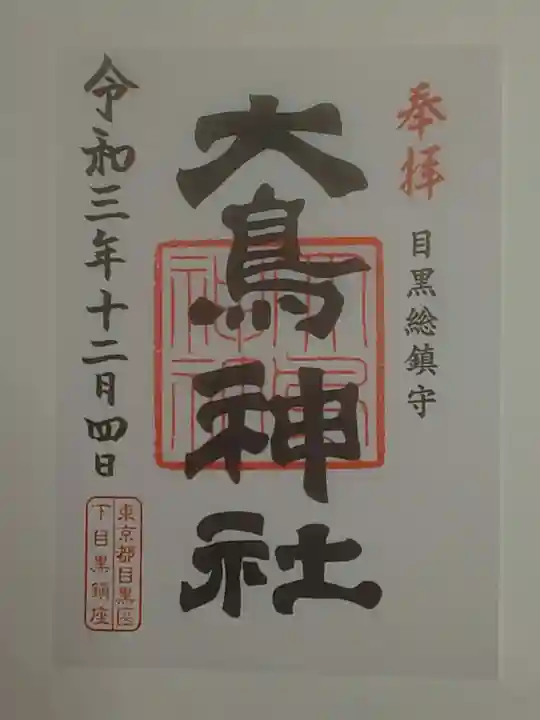 奉拝
目黒総鎮守
大鳥神社
大鳥神社
令和三年十二月四日
東京都目黒区
下目黒鎮座